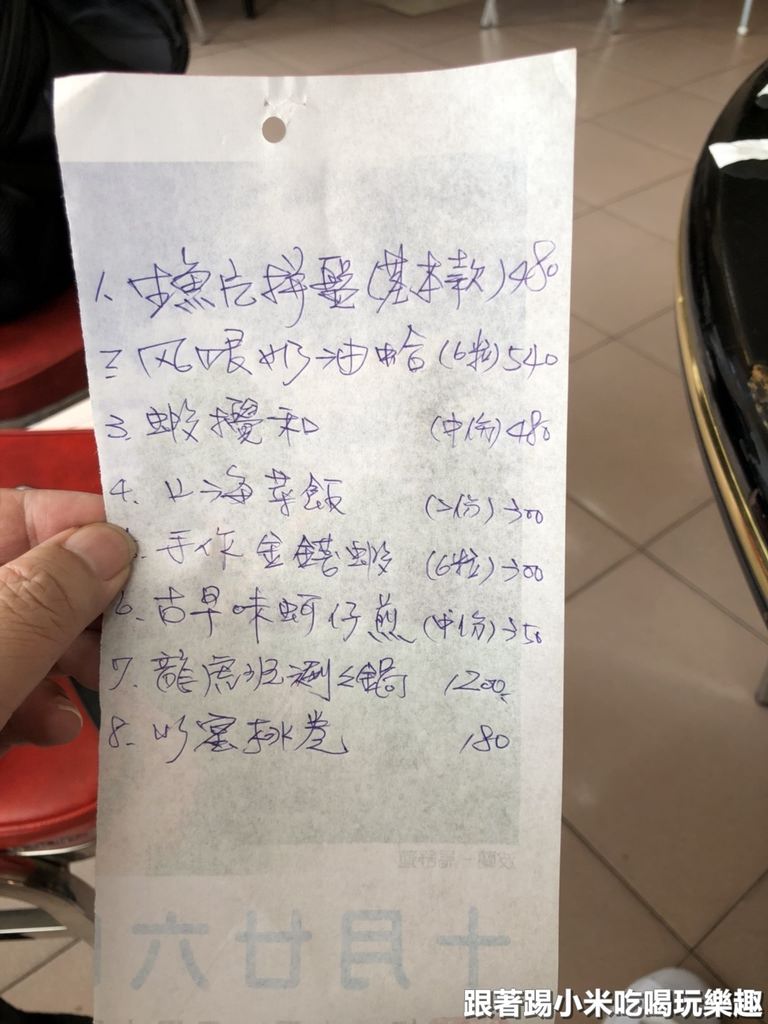 1. 生魚片拼盤(基本款)480
2 风味奶油蛤(6粒)540
3. 蝦攪和 (中份)480
4. 上海菜飯 (2份)300
5. 手作金錢蝦 (6粒)300
6. 古早味蚵仔煎(中份)350
7. 龍虎班涮涮鍋 1200
8. 排卷 180
十月廿六
跟著踢小米吃喝玩樂趣